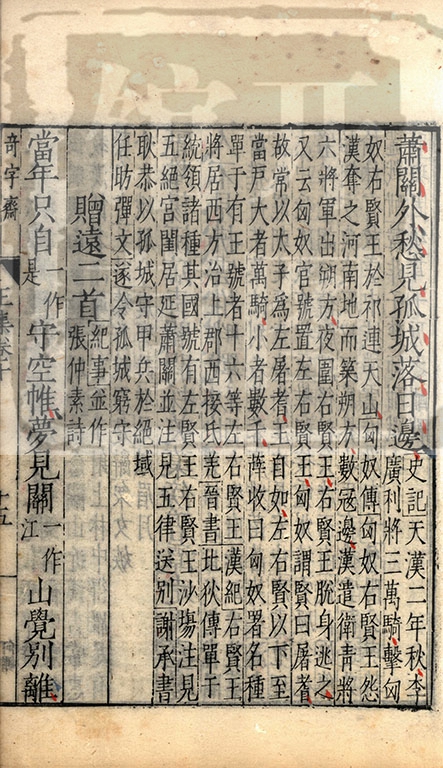 蕭關外愁見孤城落日邊
史記天漢二年秋李
廣利將三萬騎擊匈
奴右賢王於祁連天山匈奴傳匈奴右賢王怨
漢奪之河南地而築朔方數冦邊漢遣衛青將
六將軍出朔方夜圍右賢王右賢王脫身逃之
又云匈奴官號置左右賢王匈奴謂賢曰屠耆
故常以太子為左屠耆王自如左右賢以下至
當戶大者萬騎小者數千薛收曰匈奴署名種
單于有王號者十六等左右賢王漢紀右賢王
將居西方治上郡西接氐羌晉書北狄傳單于
統領諸種其國號有左賢王右賢王沙塲注見
五絕宮闈居延蕭關並注見五律送別謝承書
耿恭以孤城守甲兵於絕域
任昉彈文遂令孤城窮守
贈遠二首
紀事並作
張仲素詩
當年只自
一作
是
守空帷夢見關
一作
江
山覺別離
奇字齋
王集卷十
十五